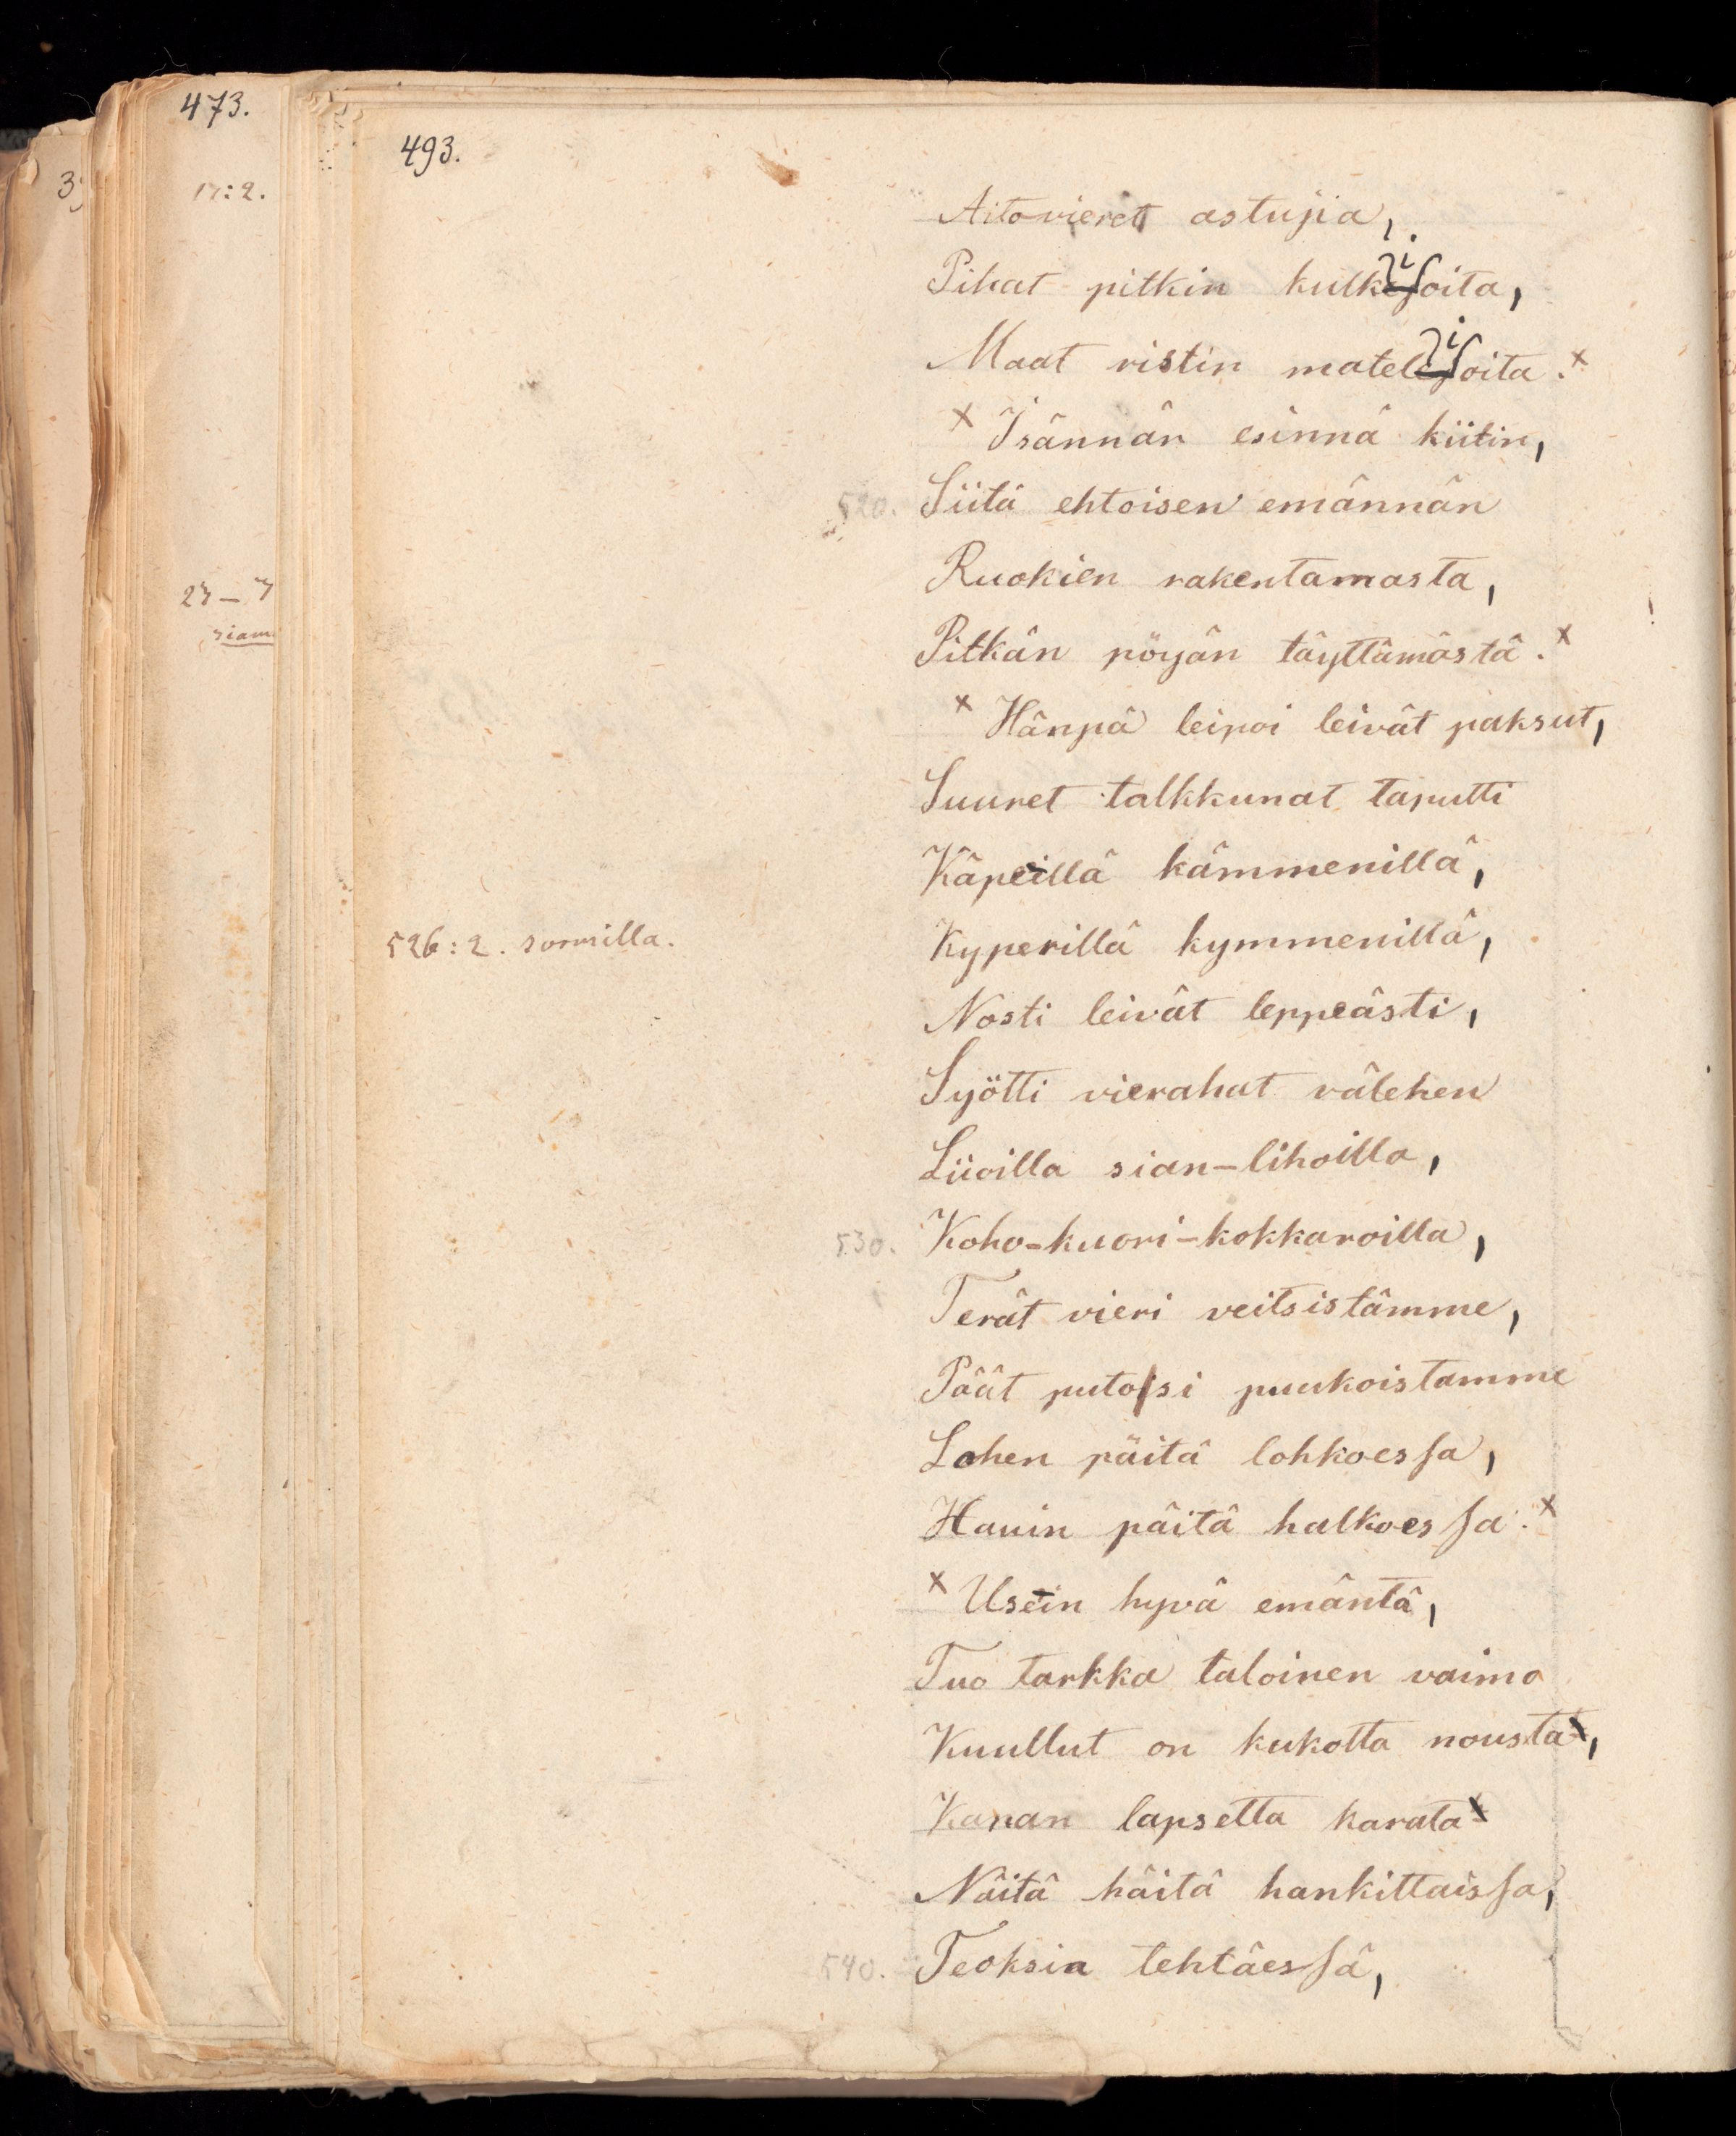 473.
3
17:2.
23-7
siam
493.
Aitovieret astujia,
Pihat pitkin kulkisoita,
Maat ristin matelisoita. x
x Isännän esinnä kiitin,
520. Siitä ehtoisen emännän
Ruokien rakentamasta,
Pitkän pöyän täyttämästä. x
x Hänpä leipoi leivät paksut,
Suuret talkkunat taputti
Käpeillä kämmenillä,
526:2. sormilla.
Kyperillä kymmenillä,
Nosti leivät leppeästi,
Syötti vierahat välehen
Liioilla sian-lihoilla,
530. Koho-kuori-kokkaroilla,
Terät vieri veitsistämme,
Päät putosi puukoistamme
Lohen päitä lohkoessa,
Hauin päitä halkoessa. x
x Usein hyvä emäntä,
Tuo tarkka taloinen vaimo
Kuullut on kukotta nousta,
Kanan lapsetta karata
Näitä häitä hankittaissa,
540. Teoksia tehtäessä,